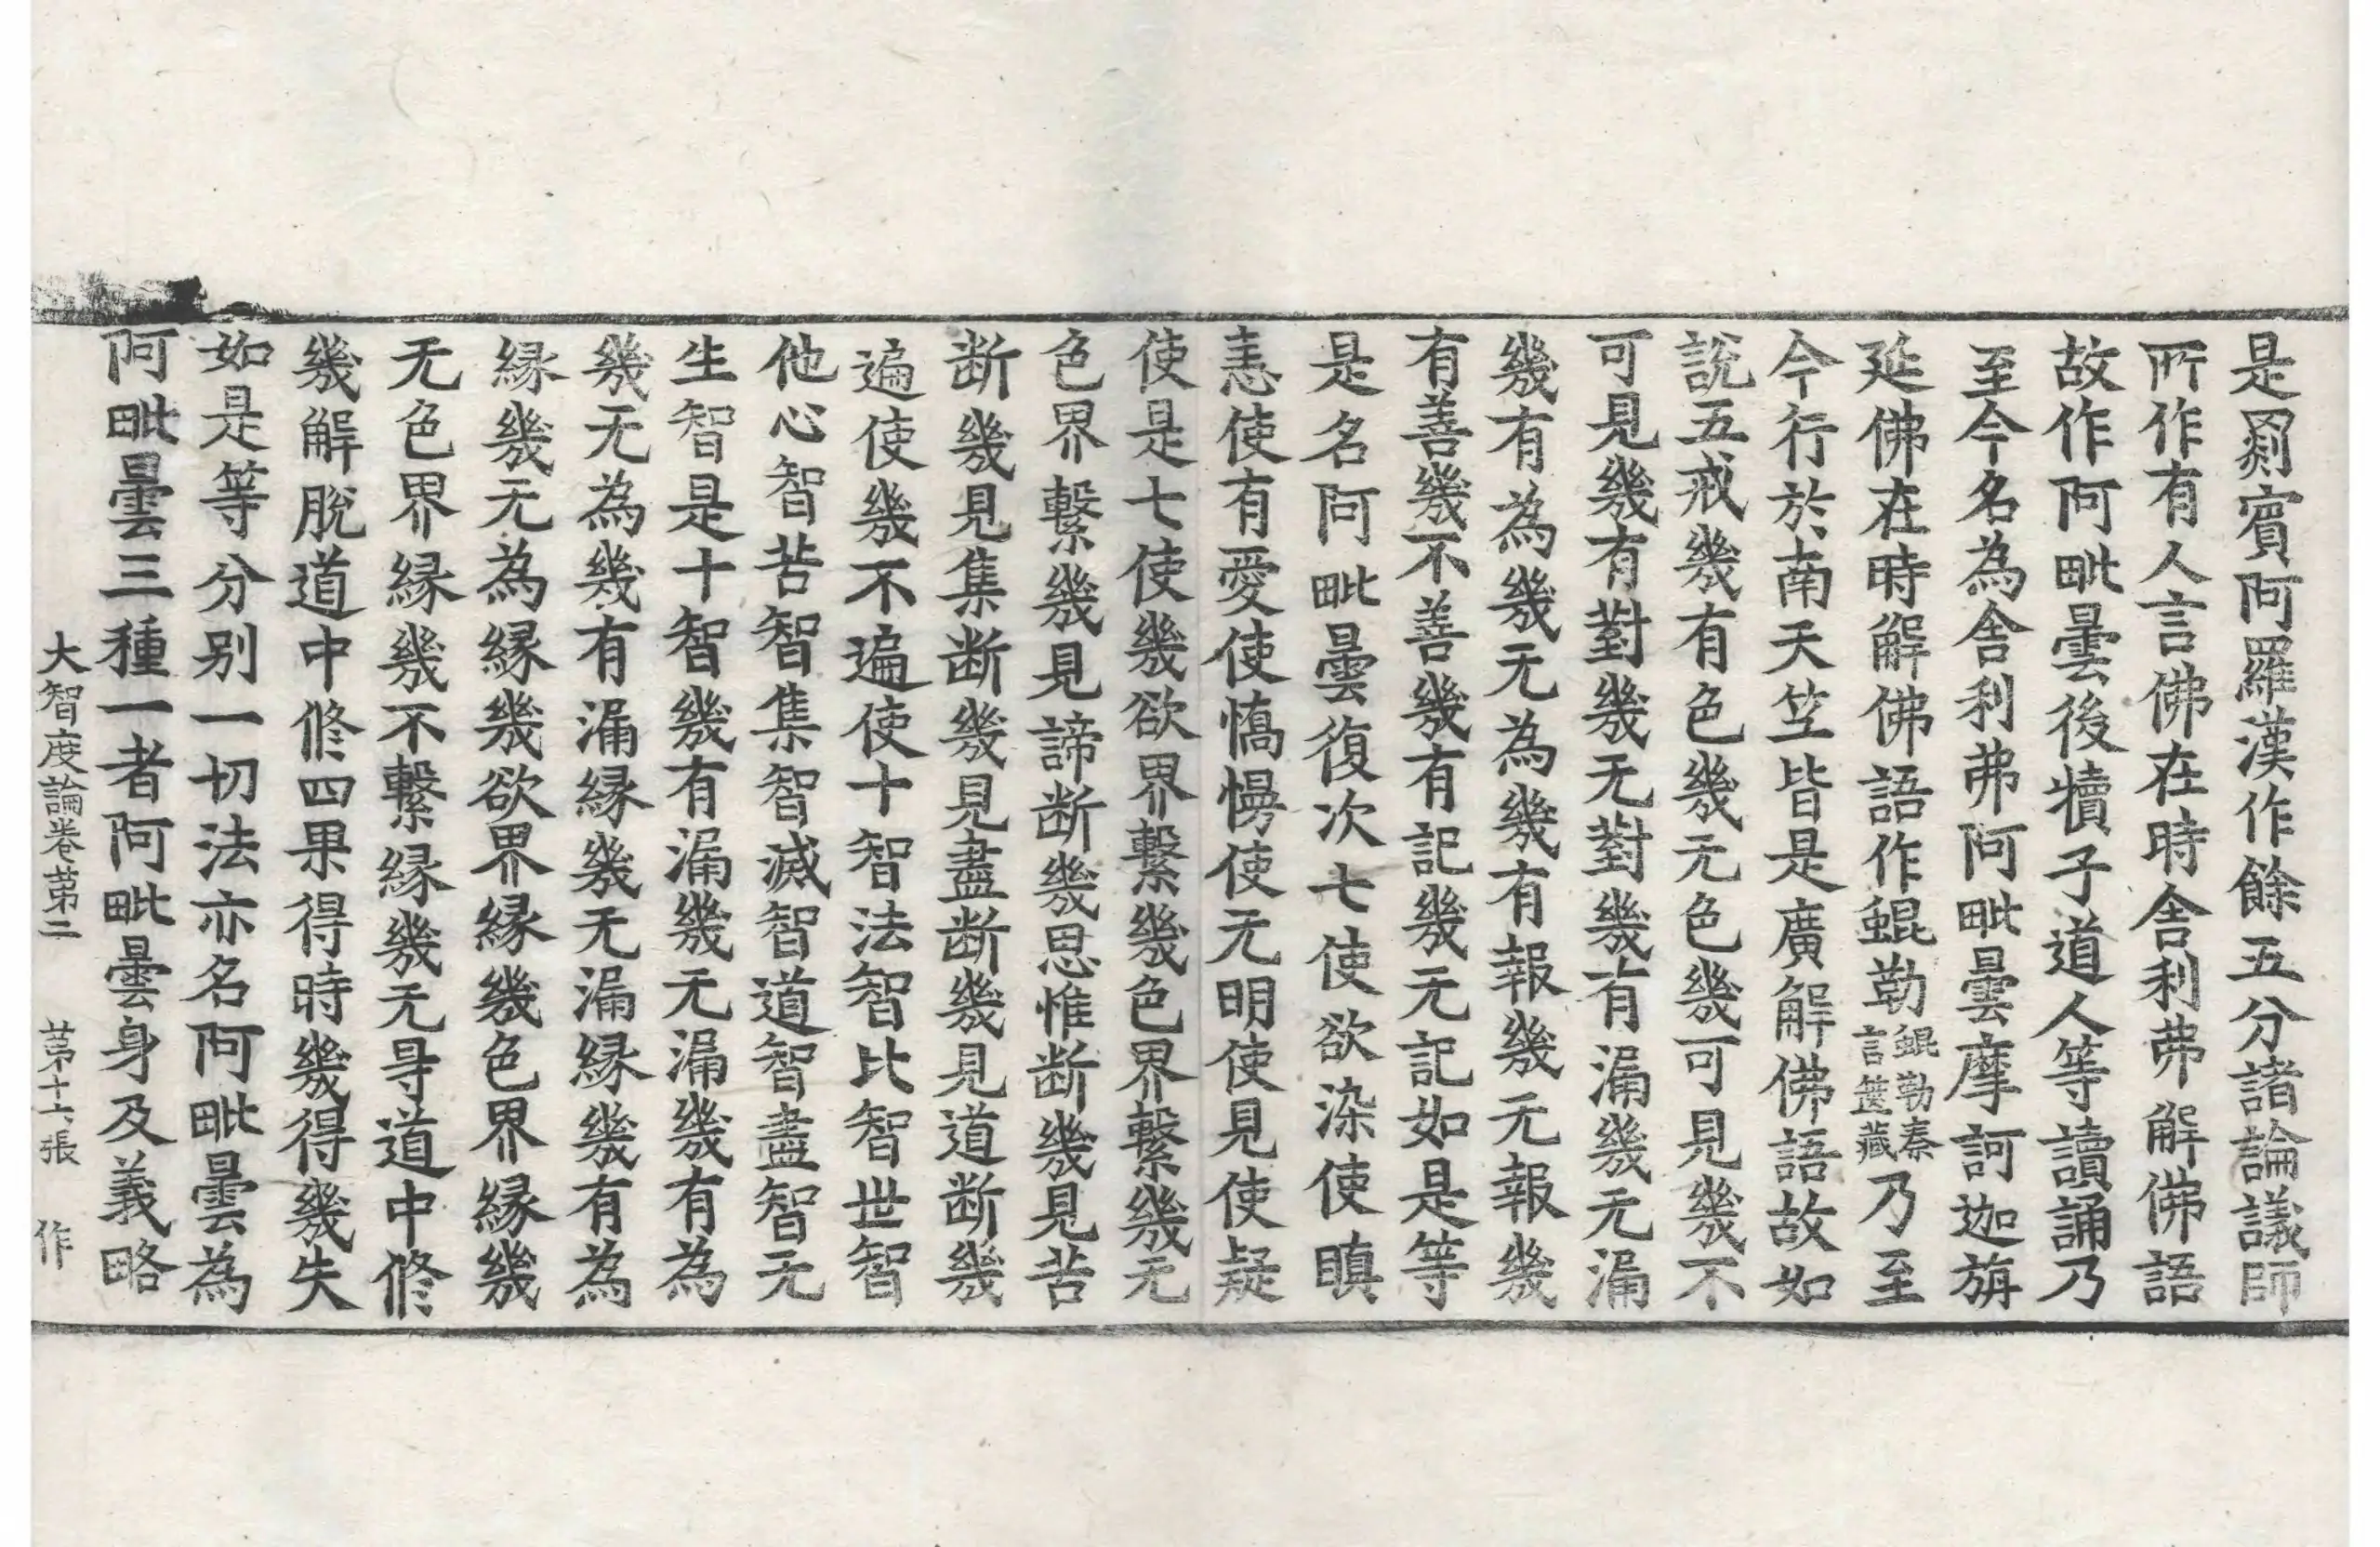 是罽賓阿羅漢作餘五分諸論議師
所作有人言佛在時舍利弗解佛語
故作阿毗曇後犢子道人等讀誦乃
至今名為舍利弗阿毗曇摩訶迦旃
延佛在時解佛語作䚟勒䚟勒秦言篋藏乃至
今行於南天竺皆是廣解佛語故如
說五戒幾有色幾无色幾可見幾不
可見幾有對幾无對幾有漏幾无漏
幾有為幾无為幾有報幾无報幾
有善幾不善幾有記幾无記如是等
是名阿毗曇復次七使欲染使瞋
恚使有愛使憍慢使无明使見使疑
使是七使幾欲界繫幾色界繫幾无
色界繫幾見諦断幾思惟断幾見苦
断幾見集断幾見盡断幾見道断幾
遍使幾不遍使十智法智比智世智
他心智苦智集智滅智道智盡智无
生智是十智幾有漏幾无漏幾有為
幾无為幾有漏緣幾无漏緣幾有為
緣幾无為緣幾欲界緣幾色界緣幾
无色界緣幾不繫緣幾无㝵道中修
幾解脫道中修四果得時幾得幾失
如是等分別一切法亦名阿毗曇為
阿毗曇三種一者阿毗曇身及義略
大智度論卷第二 第十六張 作